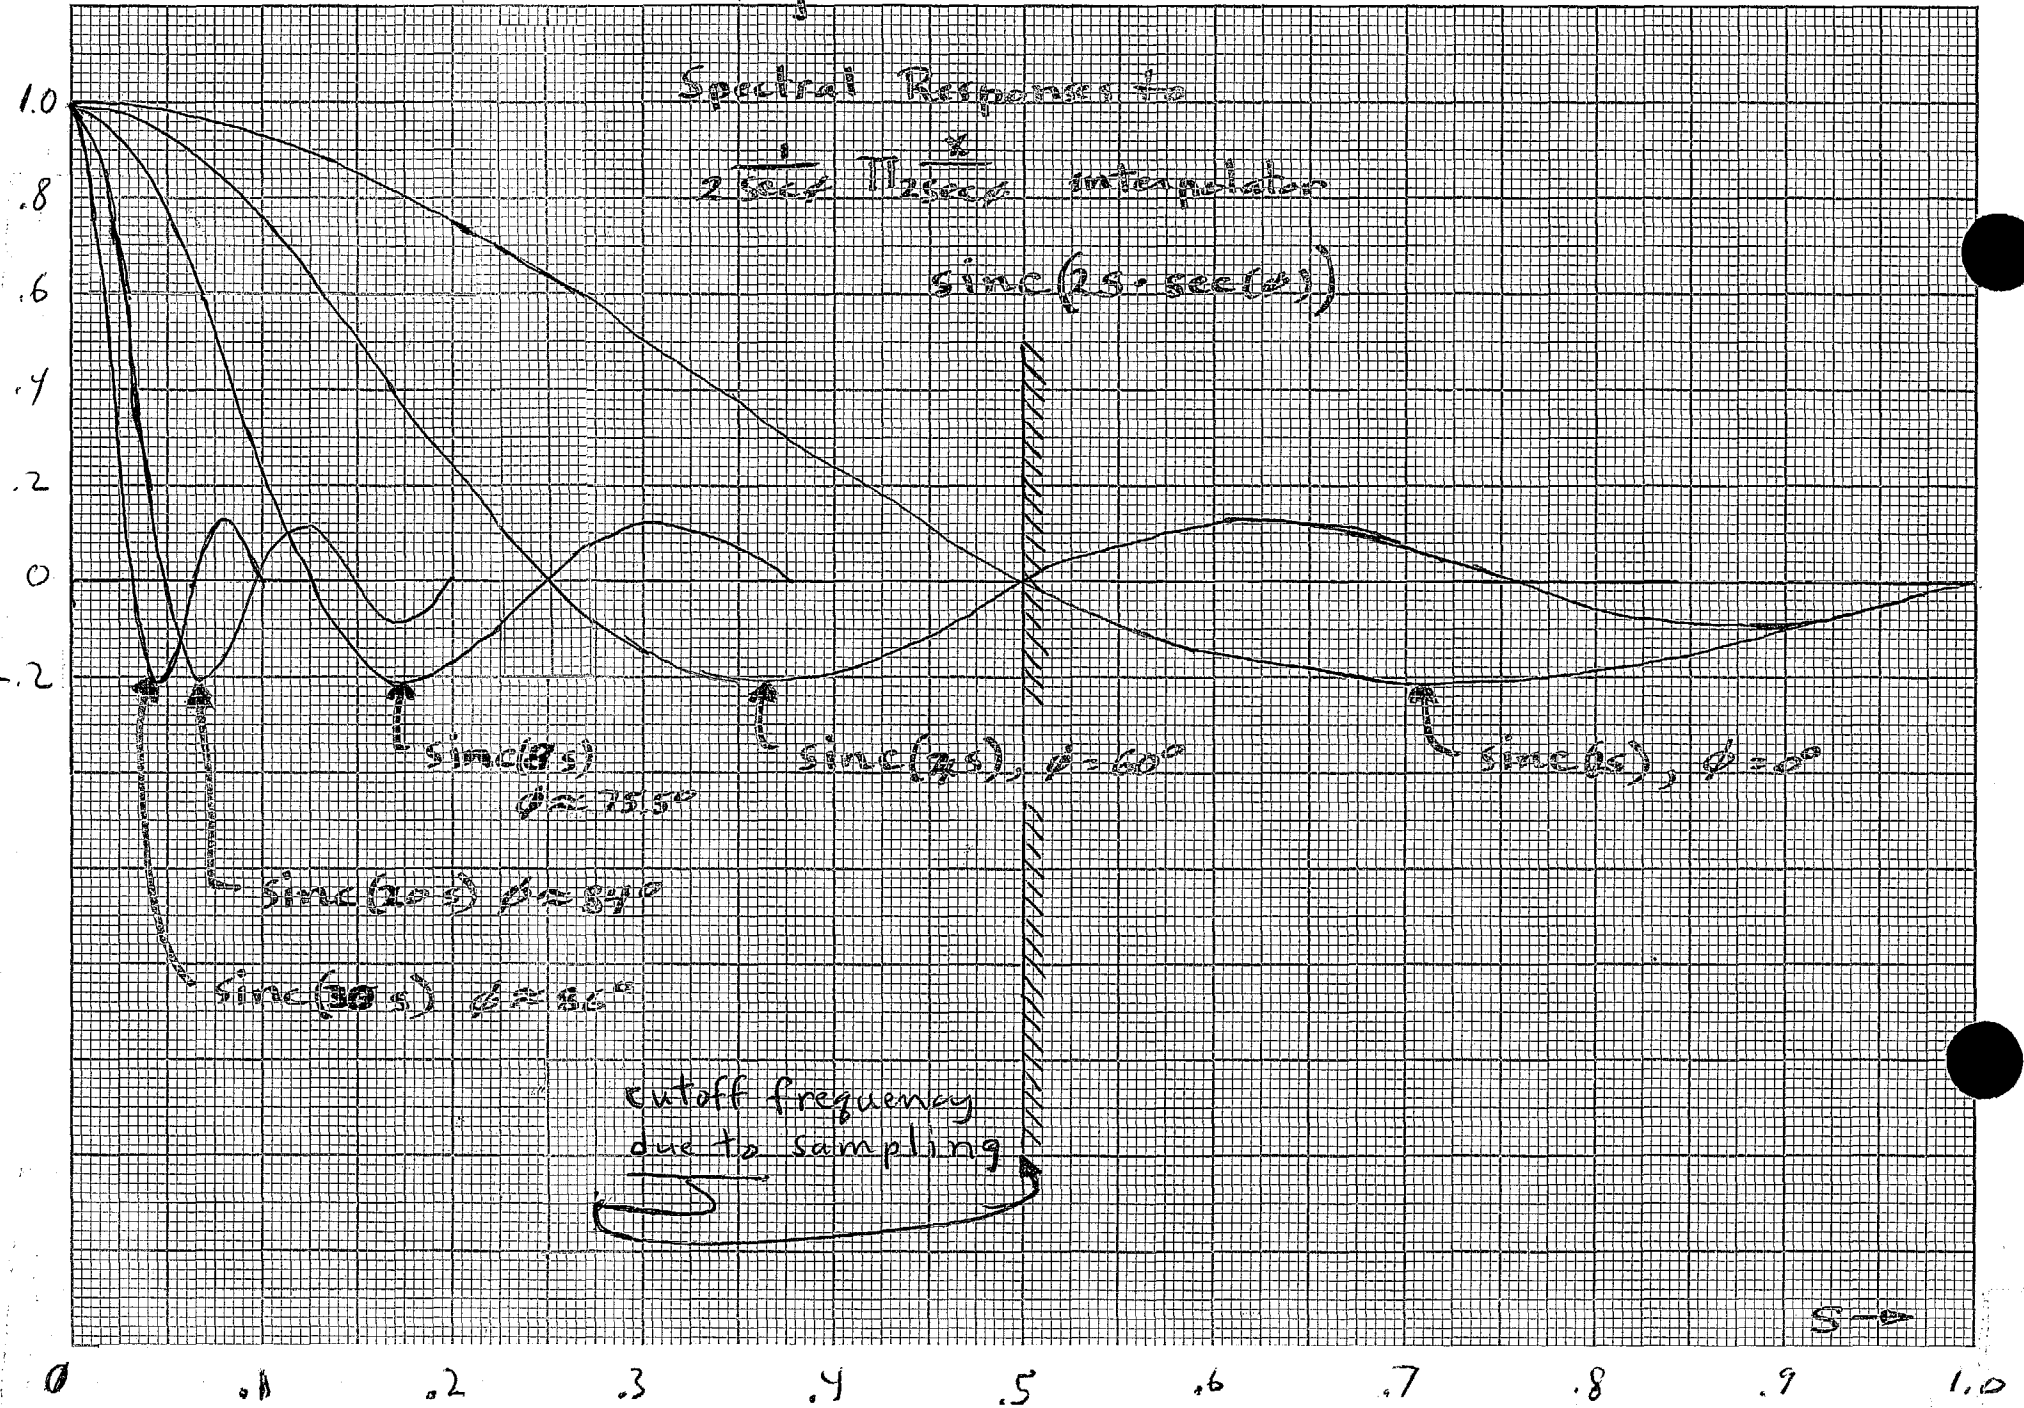 Spectral Responses to
1/2secϕ Π x/2secϕ interpolator
sinc(2s·sec(ϕ))
1.0
.8
.6
.4
.2
0
-.2
sinc(8s)
ϕ≈75.5°
sinc(4s), ϕ=60°
sinc(2s), ϕ=0°
sinc(20s) ϕ≈84°
sinc(30s) ϕ≈86°
cutoff frequency
due to sampling
s→
0 .1 .2 .3 .4 .5 .6 .7 .8 .9 1.0